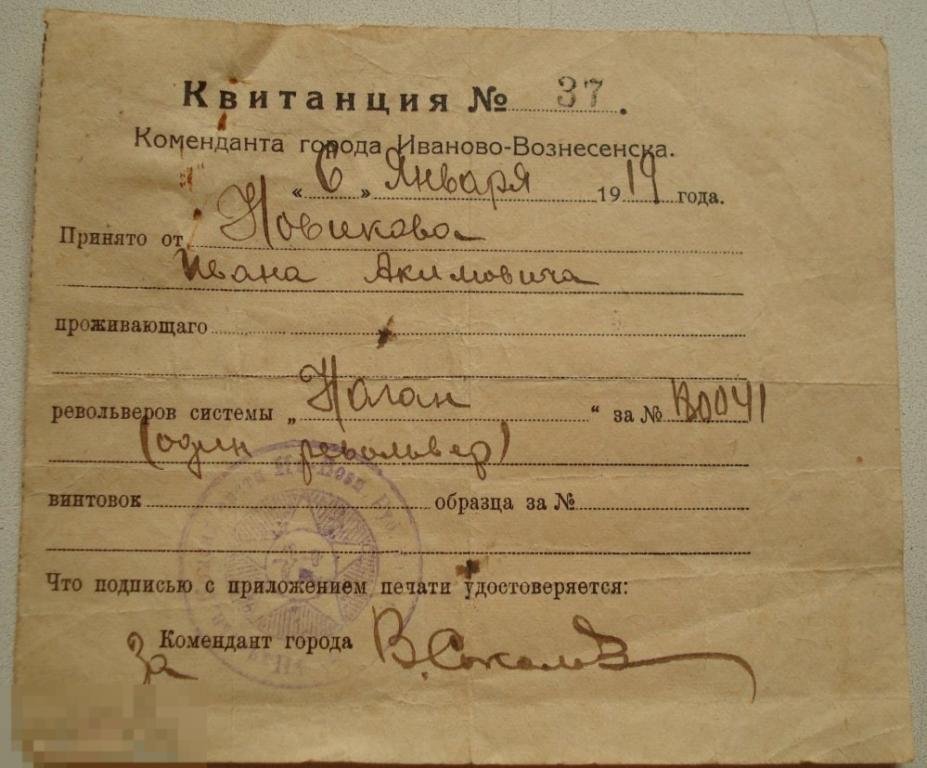 Квитанция № 37.
Коменданта города Иваново-Вознесенска.
„ 6 " Января 1919 года.
Принято от Новикова
Ивана Акимовича
проживающаго
револьверов системы „ Наган “ за № В0041
(один револьвер)
винтовок образца за №
Что подписью с приложением печати удостоверяется:
За Комендант города В. Соколов